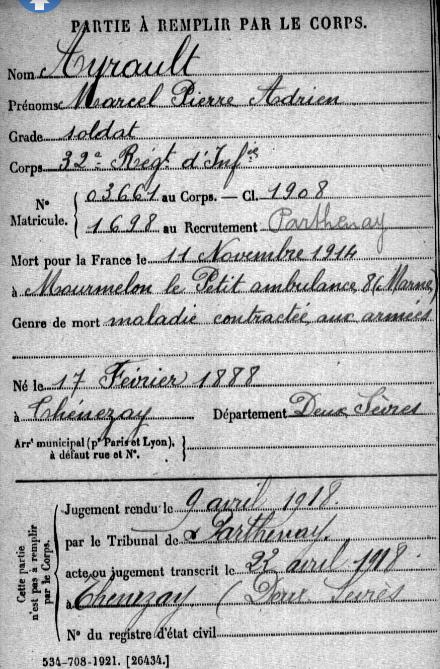 PARTIE À REMPLIR PAR LE CORPS.
Nom Ayrault
Prénoms Marcel Pierre Adrien
Grade soldat
Corps 32e Régt d'Infie
No Matricule. { 03661 au Corps. — Cl. 1908
1698 au Recrutement Parthenay
Mort pour la France le 11 Novembre 1914
à Mourmelon le Petit ambulance 8 (Marne)
Genre de mort maladie contractée aux armées
Né le 17 Février 1888
à Thénezay Département Deux Sèvres
Arrt municipal (pr Paris et Lyon), à défaut rue et No. }
Cette partie n'est pas à remplir par le Corps.
Jugement rendu le 9 avril 1918.
par le Tribunal de Parthenay
acte ou jugement transcrit le 23 avril 1918.
à Thénezay (Deux Sèvres
No du registre d'état civil
534-708-1921. [26434.]